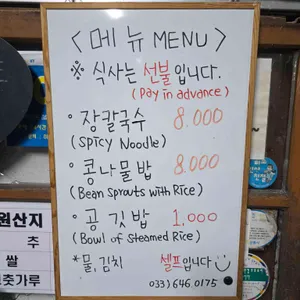 <메뉴 MENU>
※ 식사는 선불입니다.
(Pay in advance)
° 장칼국수 8.000
(SPICY Noodle)
° 콩나물밥 8.000
(Bean Sprouts with Rice)
° 공깃밥 1.000
(Bowl of Steamed Rice)
* 물, 김치 셀프입니다
033)646.0175
원산지
추
쌀